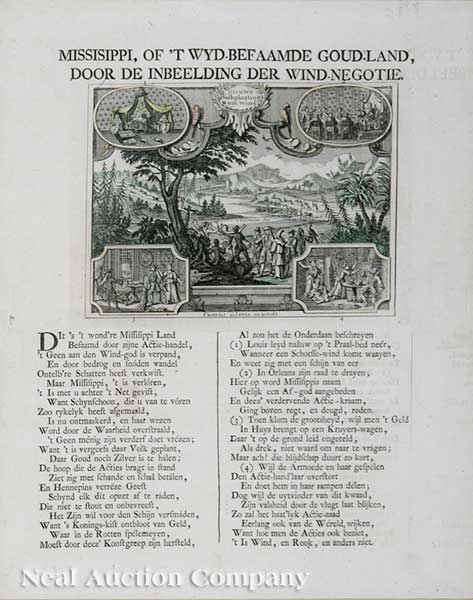 MISSISIPPI, OF 'T WYD-BEFAAMDE GOUD-LAND,
DOOR DE INBEELDING DER WIND-NEGOTIE.
Fumus gloria mundi
DIt 's 't wond're Missisippi Land
Befaamd door zijne Actie-handel,
't Geen aan den Wind-god is verpand,
En door bedrog en snóden wandel
Ontelb're Schatten heeft verkwist.
Maar Missisippi, 't is verlóren,
't Is met u achter 't Net gevist,
Want Schynschoon, die u van te vóren
Zoo rykelyk heeft afgemaald,
Is nu ontmaskerd, en haar wezen
Word door de Waarheid overstraald,
't Geen ménig zijn verderf doet vrézen;
Want 't is vergeefs daar Volk geplant,
Daar Goud noch Zilver is te halen;
De hoop die de Acties bragt in stand
Ziet zig met schande en schal betálen,
En Hennepins verréze Geest
Schynd elk dit opzet af te raden,
Die niet te stout en onbevreest,
Het Zijn wil voor den Schijn versmaden,
Want 's Konings-kist ontbloot van Geld,
Waar in de Rotten spélemeyen,
Moest door deez' Konstgreep zijn hersteld,
Al zou het de Onderdaan beschreyen
(1) Louis leyd naluw op 't Praal-bed neêr,
Wanneer een Schotse-wind komt waayen,
En weet zig met een schijn van eer
(2) In Orleans zijn raad te drayen;
Hier op word Missisippis naam
Gelijk een Af-god aangebeden
En deez' verdervende Actie-kraam,
Ging bóven regt, en deugd, reden.
(3) Toen klom de grootsheyd, wijl men 't Geld
In Huys brengt op een Kruyers-wagen,
Daar 't op de grond leid ongeteld,
Als drek, niet waard om naar te vragen;
Maar ach! die blijdschap duurt zo kort,
(4) Wijl de Armoede en haar gespelen
Den Actie-hand'laar overstort
En doet hem in haar rampen délen;
Dog wijl de uytvinder van dit kwaad,
Zijn valsheid door de vlugt laat blijken,
Zo zal het haat'lyk Actie-zaad
Eerlang ook van de Wéreld wijken,
Want hoe men de Acties ook beziet,
't Is Wind, en Rook, en anders niet.
Neal Auction Company